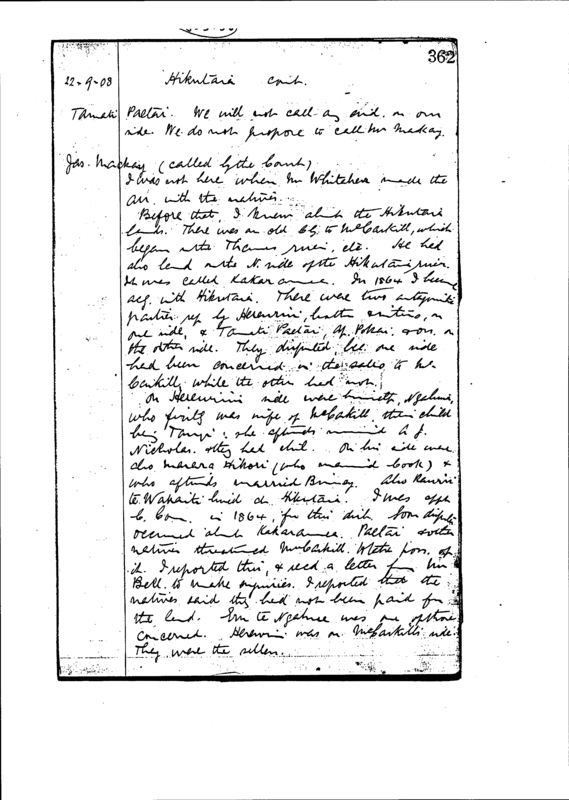 362
22-9-08 Hikutaia cont.
Tamati Paetai. We will not call any evid. on our
side. We do not propose to call Mr Mackay.
Jas. Mackay (called by the Court)
I was not here when Mr Whitaker made the
arr. with the natives.
Before that, I knew about the Hikutaia
lands. There was an old to McCaskill, which
began at the Thames river, etc. He had
also land on the N. side of the Hikutaia river.
It was called Kakaramea. In 1864 I became
acq. with Hikutaia. There were two antagonistic
parties rep by Herewini, & on
one side, & Tamati Paetai, & ors. on
the other side. They disputed bec. one side
had been concerned in the sales to Mc
Caskill, while the other had not.
On Herewini's side were himself,
who firstly was wife of McCaskill, their child
being she afterwds married A. J.
Nicholas. & they had chil. On his side were
also Marara Hikori (who married Cook) &
who afterwds married Also
to Wahaiti lived at Hikutaia. I was appt
C. Com. in 1864, for this dist. Some dispute
occurred about Kakaramea. Paetai & other
natives threatened McCaskill to take poss. of
it. I reported this, & recd a letter from Mr
Bell to make enquiries. I reported that the
natives said they had not been paid for
the land. was one of those
concerned. Herewini was on McCaskill's side.
They were the sellers.